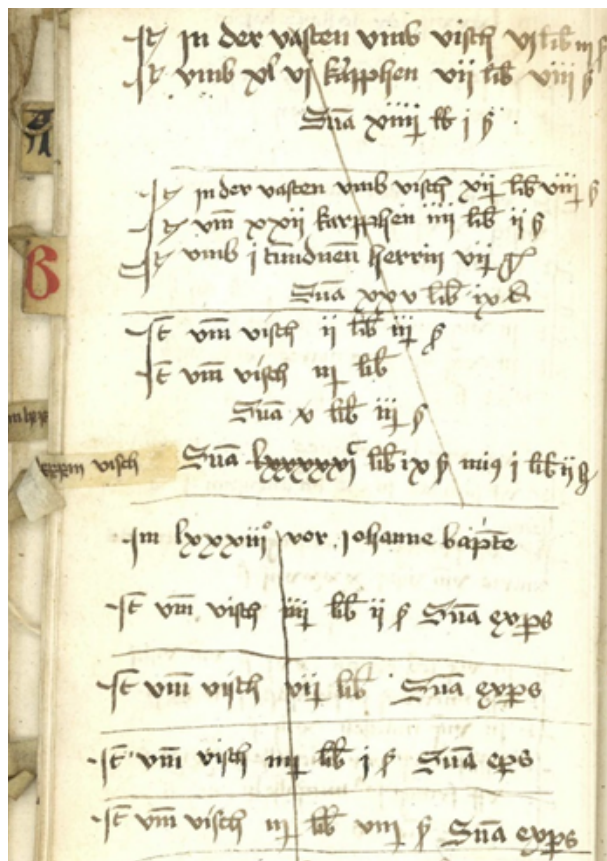 It in der vasten vmb visch vj lib iij ß
It vmb xl vj karpphen vij lib viij ß
Sūa xiiij lb j ß
It in der vasten vmb visch xij lib viij ß
It vm xxij karpphen iiij lib ij ß
It vmb j herrin vij
Sūa xxv lib ix
It vm̄ visch ij lib iij ß
It vm̄ visch iij lib
Sūa x lib iij ß
visch
Sūa lib ix ß j lib ij ß
Im lxxxiijo vor Johanne bapte
It vm̄ visch iiij lib ij ß Sūa exps
It vm̄ visch vij lib Sūa exps
It vm̄ visch iij lib j ß Sūa eps
It vm̄ visch iij lib viij ß Sūa exps